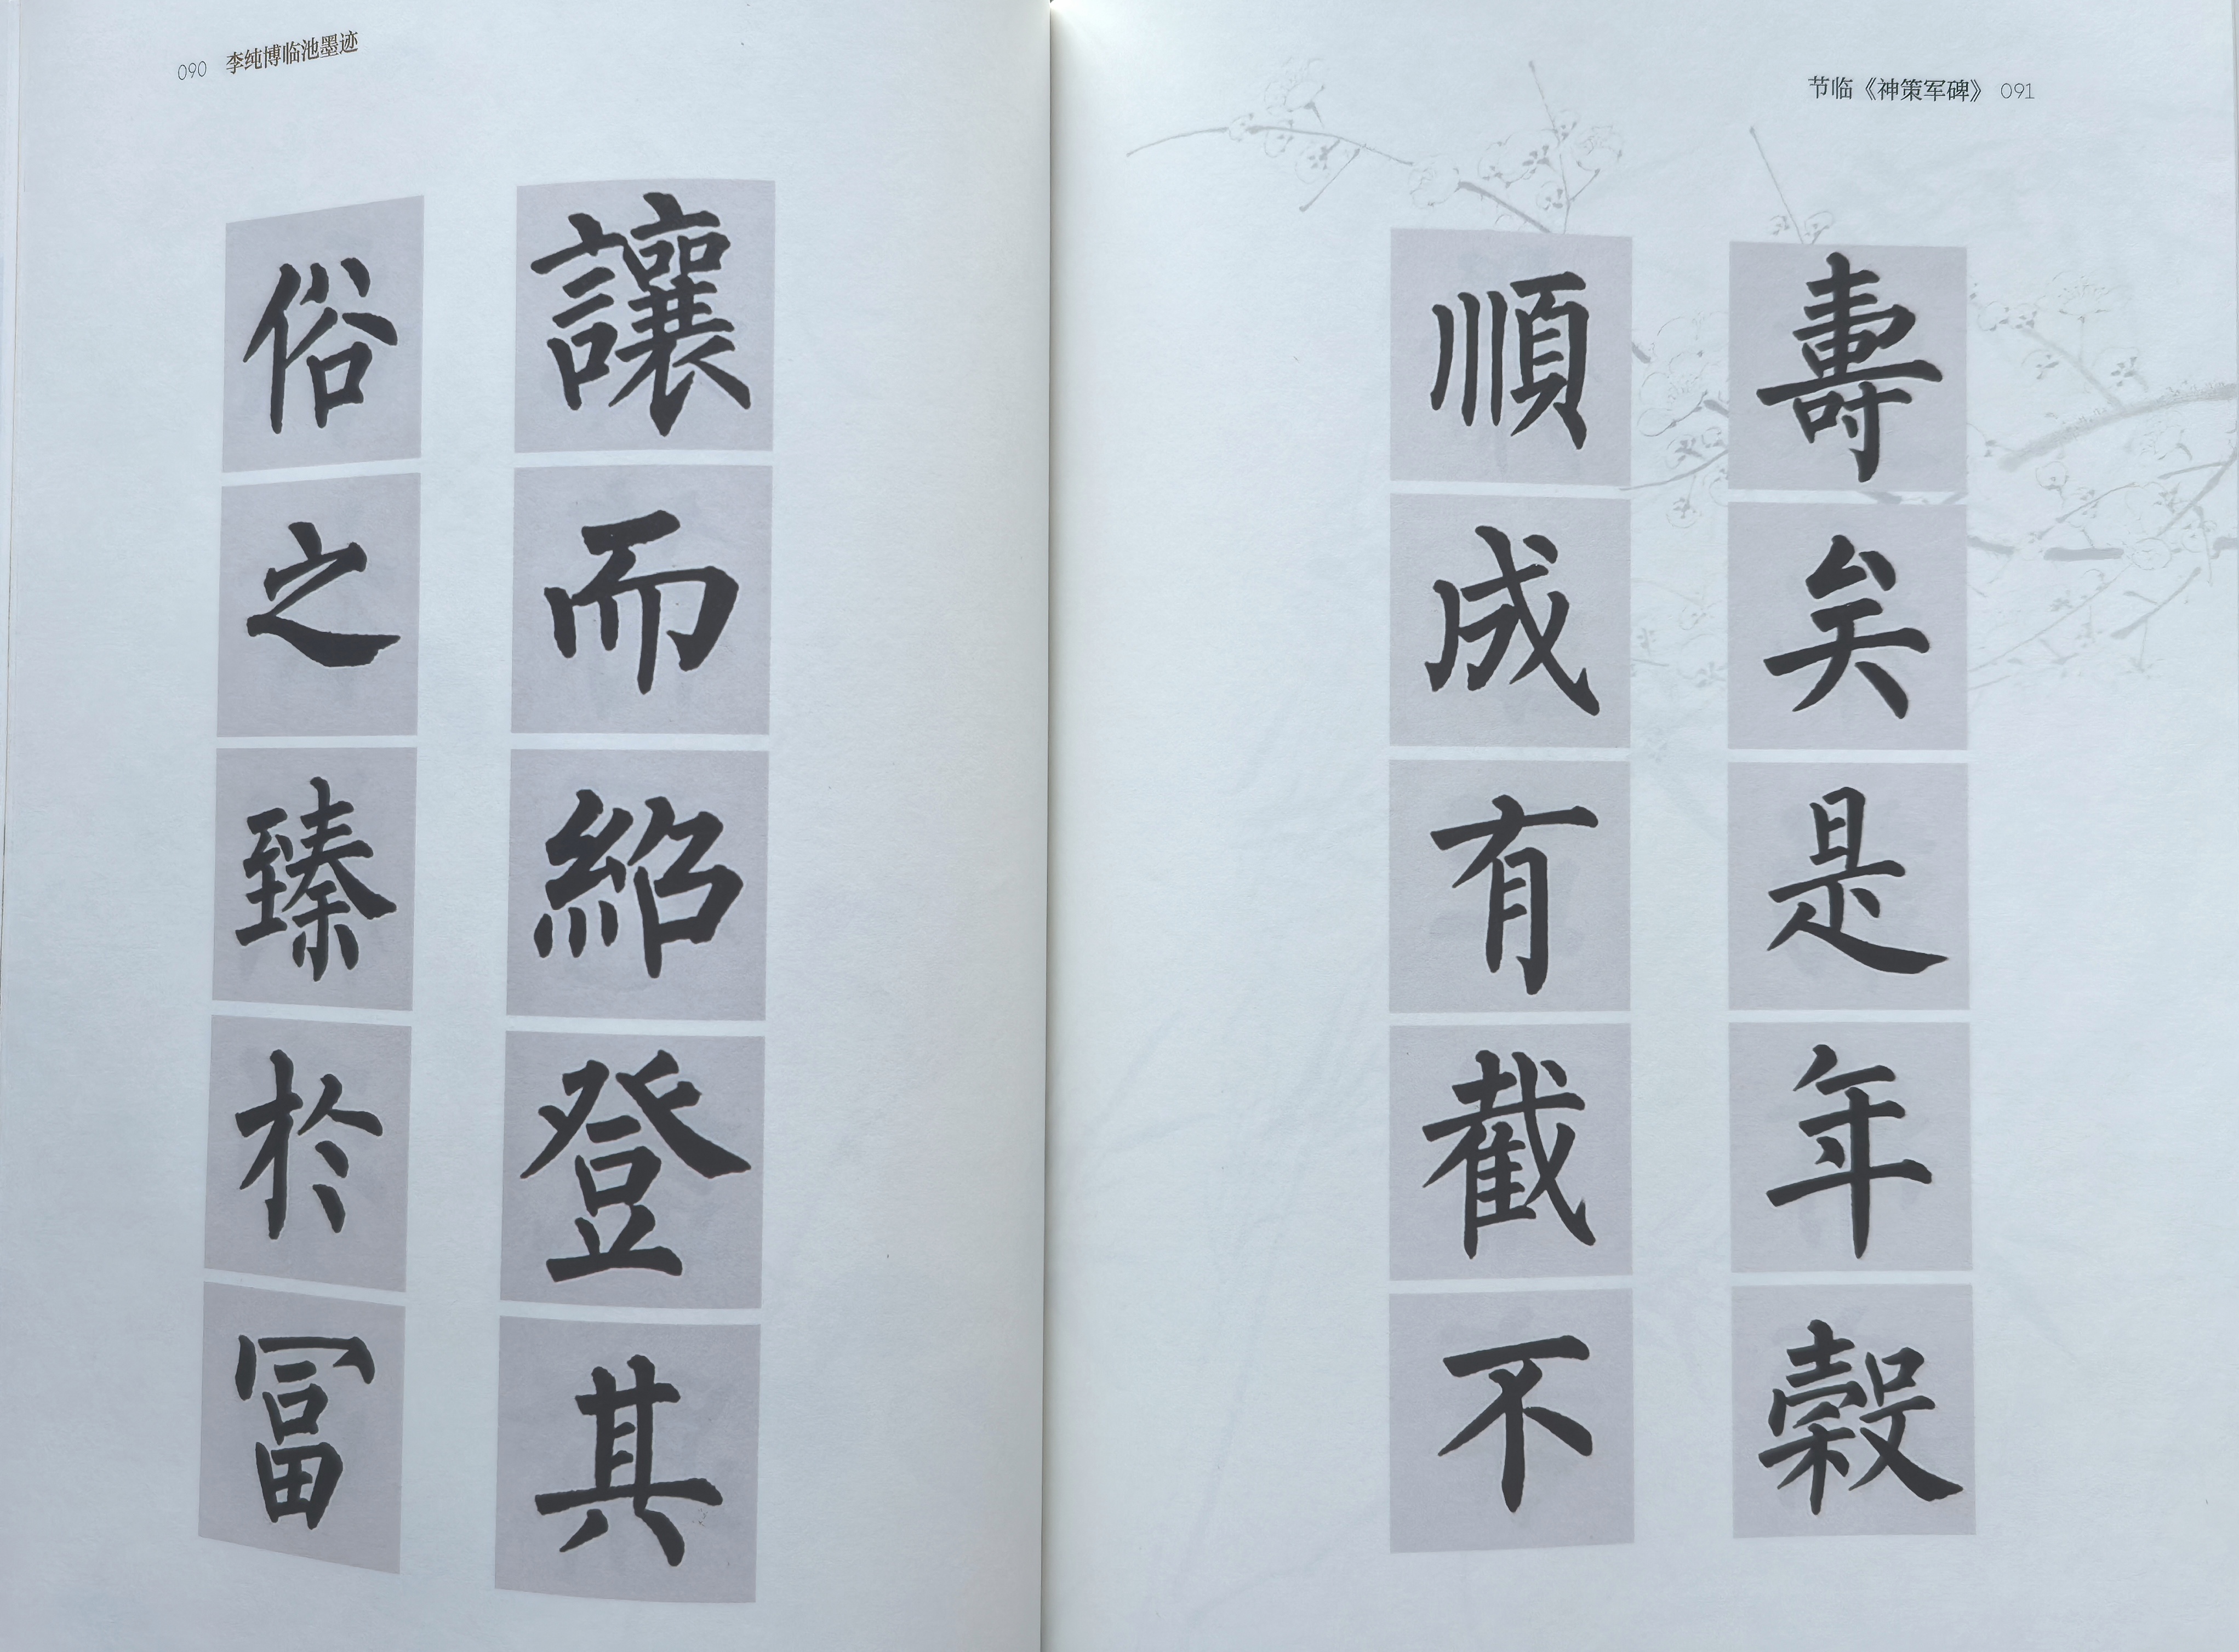 090 李纯博临池墨迹
讓而紹登其
俗之臻於冨
节临《神策军碑》 091
壽矣是年穀
順成有截不